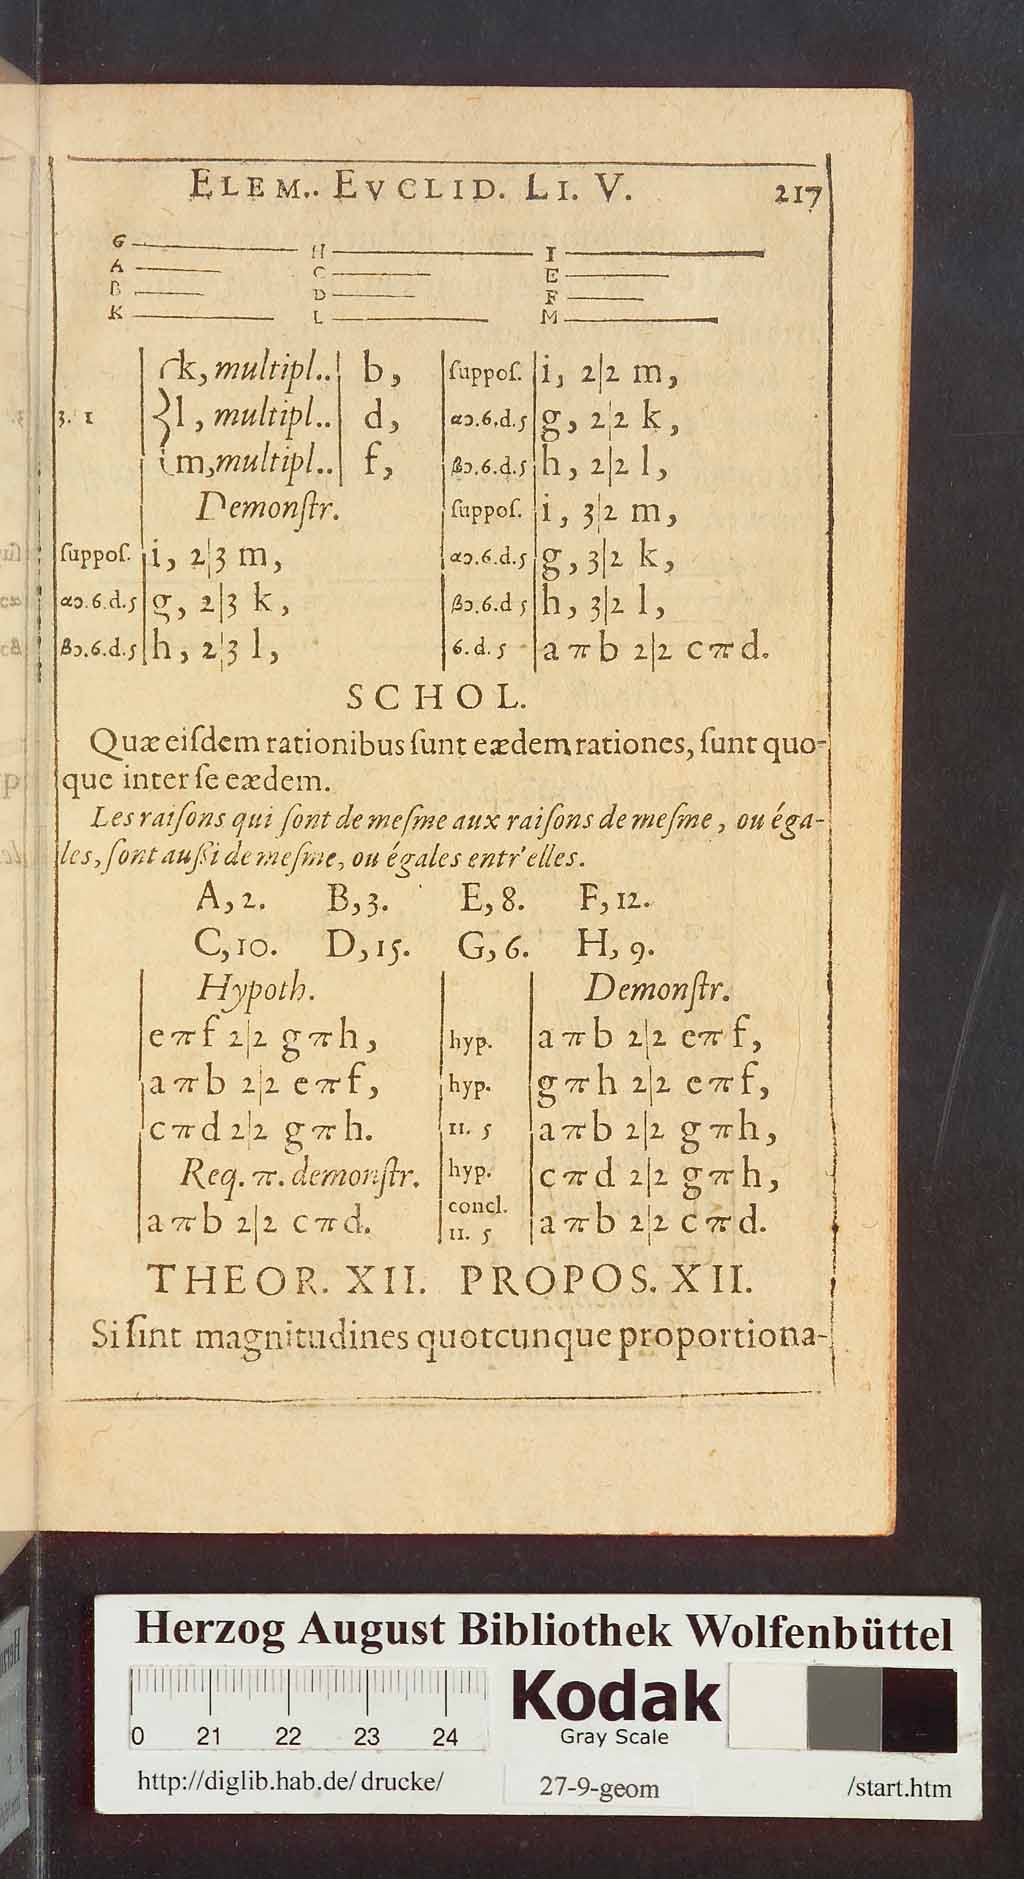 ELEM.. EVCLID. LI. V. 217
G H I
A C E
B D F
K L M
k, multipl.. b,
3. 1 l, multipl.. d,
m, multipl.. f,
Demonſtr.
ſuppoſ. i, 2|3 m,
αɔ.6.d.5 g, 2|3 k,
βɔ.6.d.5 h, 2|3 l,
ſuppoſ. i, 2|2 m,
αɔ.6.d.5 g, 2|2 k,
βɔ.6.d.5 h, 2|2 l,
ſuppoſ. i, 3|2 m,
αɔ.6.d.5 g, 3|2 k,
βɔ.6.d 5 h, 3|2 l,
6. d. 5 a π b 2|2 c π d.
SCHOL.
Quæ eiſdem rationibus ſunt eædem rationes, ſunt quo-
que inter ſe eædem.
Les raiſons qui ſont de meſme aux raiſons de meſme, ou éga-
les, ſont auſſi de meſme, ou égales entr'elles.
A, 2. B, 3. E, 8. F, 12.
C, 10. D, 15. G, 6. H, 9.
Hypoth.
e π f 2|2 g π h,
a π b 2|2 e π f,
c π d 2|2 g π h.
Req. π. demonſtr.
a π b 2|2 c π d.
Demonſtr.
hyp. a π b 2|2 e π f,
hyp. g π h 2|2 e π f,
11. 5 a π b 2|2 g π h,
hyp. c π d 2|2 g π h,
concl.
11. 5 a π b 2|2 c π d.
THEOR. XII. PROPOS. XII.
Si ſint magnitudines quotcunque proportiona-
Herzog August Bibliothek Wolfenbüttel
0 21 22 23 24
Kodak
Gray Scale
http://diglib.hab.de/drucke/ 27-9-geom /start.htm